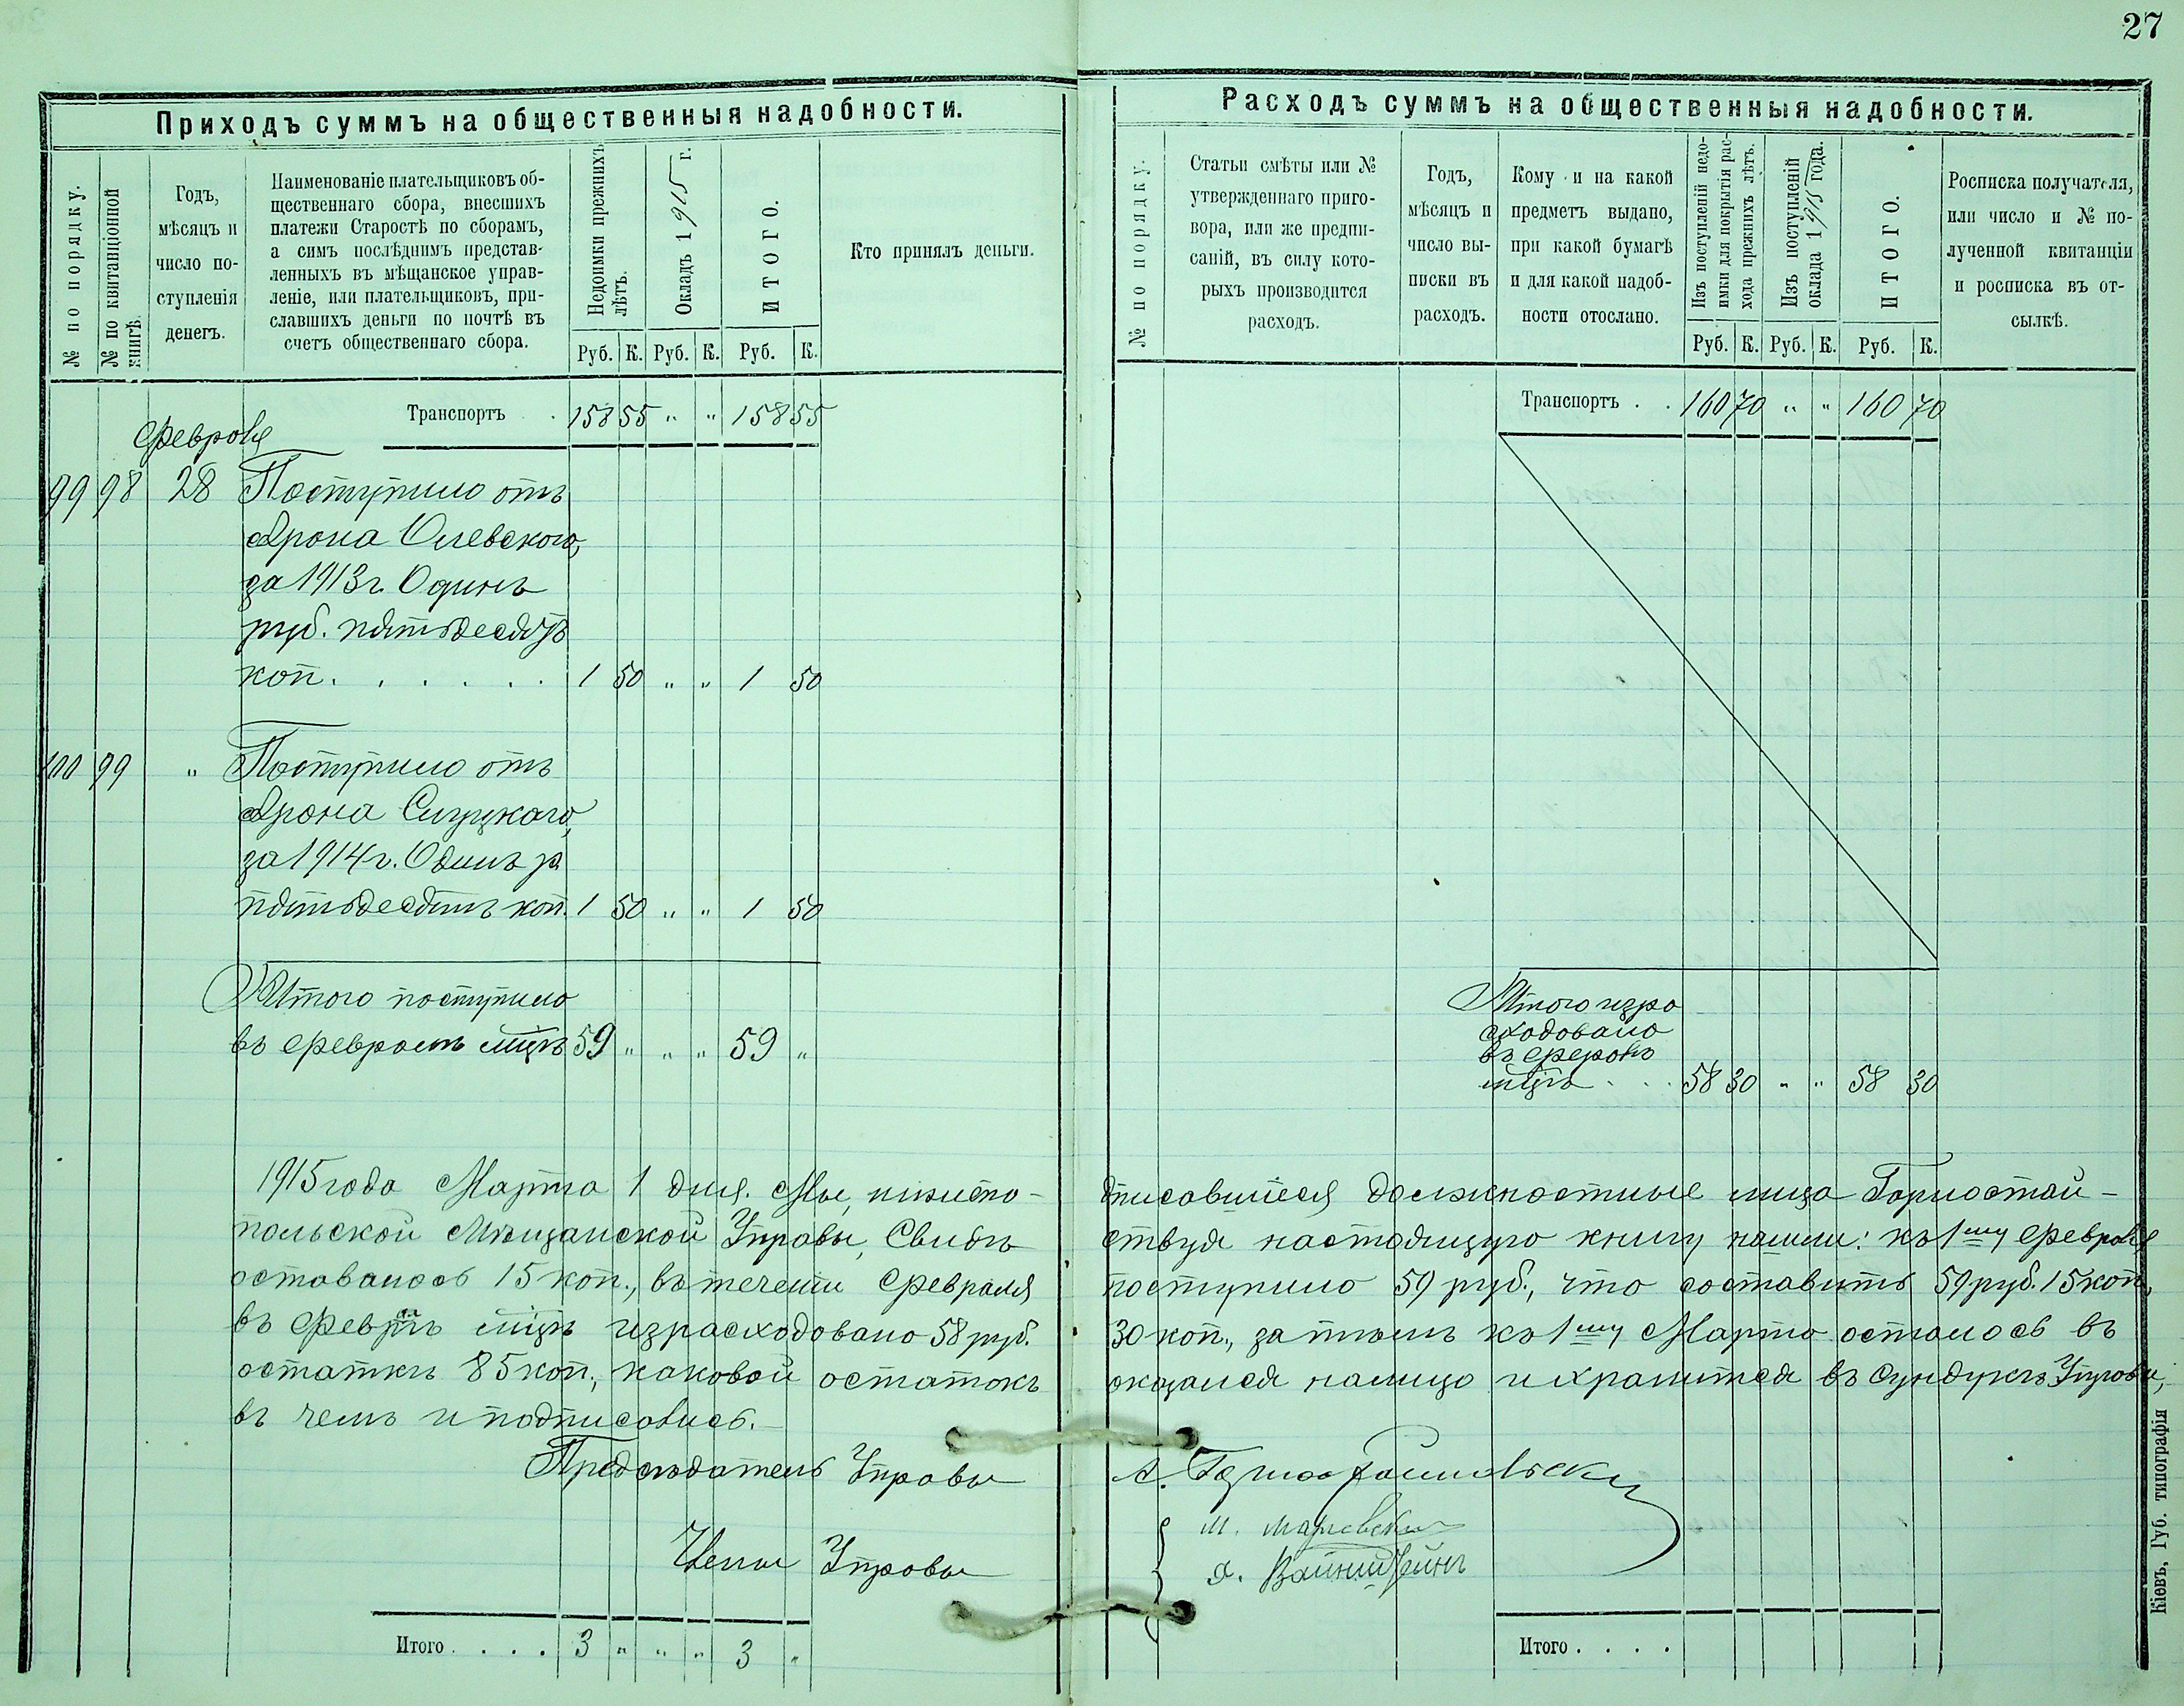 27
Приходъ суммъ на общественныя надобности.
№ по порядку.
№ по квитанціонной
книгѣ.
Годъ,
мѣсяцъ и
число по-
ступленія
денегъ.
Наименованіе плательщиковъ об-
щественнаго сбора, внесшихъ
платежи Старостѣ по сборамъ,
а симъ послѣднимъ представ-
ленныхъ въ мѣщанское управ-
леніе, или плательщиковъ, при-
славшихъ деньги по почтѣ въ
счетъ общественнаго сбора.
Недоимки прежнихъ
лѣтъ.
Окладъ 1915 г.
ИТОГО.
Кто принялъ деньги.
Руб. К. Руб. К. Руб. К.
Транспортъ . 158 55 " " 158 55
Февраля
99 98 28 Поступило отъ
Арона Олевского,
за 1913 г. Одинъ
руб. пятьдесятъ
коп. . . . . . 1 50 " " 1 50
100 99 " Поступило отъ
Арона Слуцкаго,
за 1914 г. Одинъ р.
пятьдесятъ коп. 1 50 " " 1 50
Итого поступило
въ февралѣ мцѣ 59 " " " 59 "
Расходъ суммъ на общественныя надобности.
№ по порядку.
Статьи смѣты или №
утвержденнаго приго-
вора, или же предпи-
саній, въ силу кото-
рыхъ производится
расходъ.
Годъ,
мѣсяцъ и
число вы-
писки въ
расходъ.
Кому и на какой
предметъ выдано,
при какой бумагѣ
и для какой надоб-
ности отослано.
Изъ поступленій недо-
имки для покрытія рас-
хода прежнихъ лѣтъ.
Изъ поступленій
оклада 1915 года.
ИТОГО.
Росписка получателя,
или число и № по-
лученной квитанціи
и росписка въ от-
сылкѣ.
Руб. К. Руб. К. Руб. К.
Транспортъ . . 160 70 " " 160 70
Итого изра
сходовано
въ
мцѣ . . . 58 30 " " 58 30
1915 года Марта 1 дня. Мы, нижепо- дписавшіеся должностные лица Горностай-
польской Мѣщанской Управы, Свидѣ тствуя настоящую книгу нашли: къ 1му Февраля
оставалось 15 коп., въ теченіи Февраля поступило 59 руб., что составитъ 59 руб. 15 коп.,
въ февралѣ мцѣ израсходовано 58 руб. 30 коп., за тѣмъ къ 1му Марта осталось въ
остаткѣ 85 коп., каковой остатокъ оказался налицо и хранится въ сундукѣ Управы,
въ чемъ и подписались.
Предсѣдатель Управы А.
Члены Управы
Я. Вайнштейнъ
Итого . . . . 3 " " " 3 "
Итого . . . .
Кіевъ, Губ. типографія